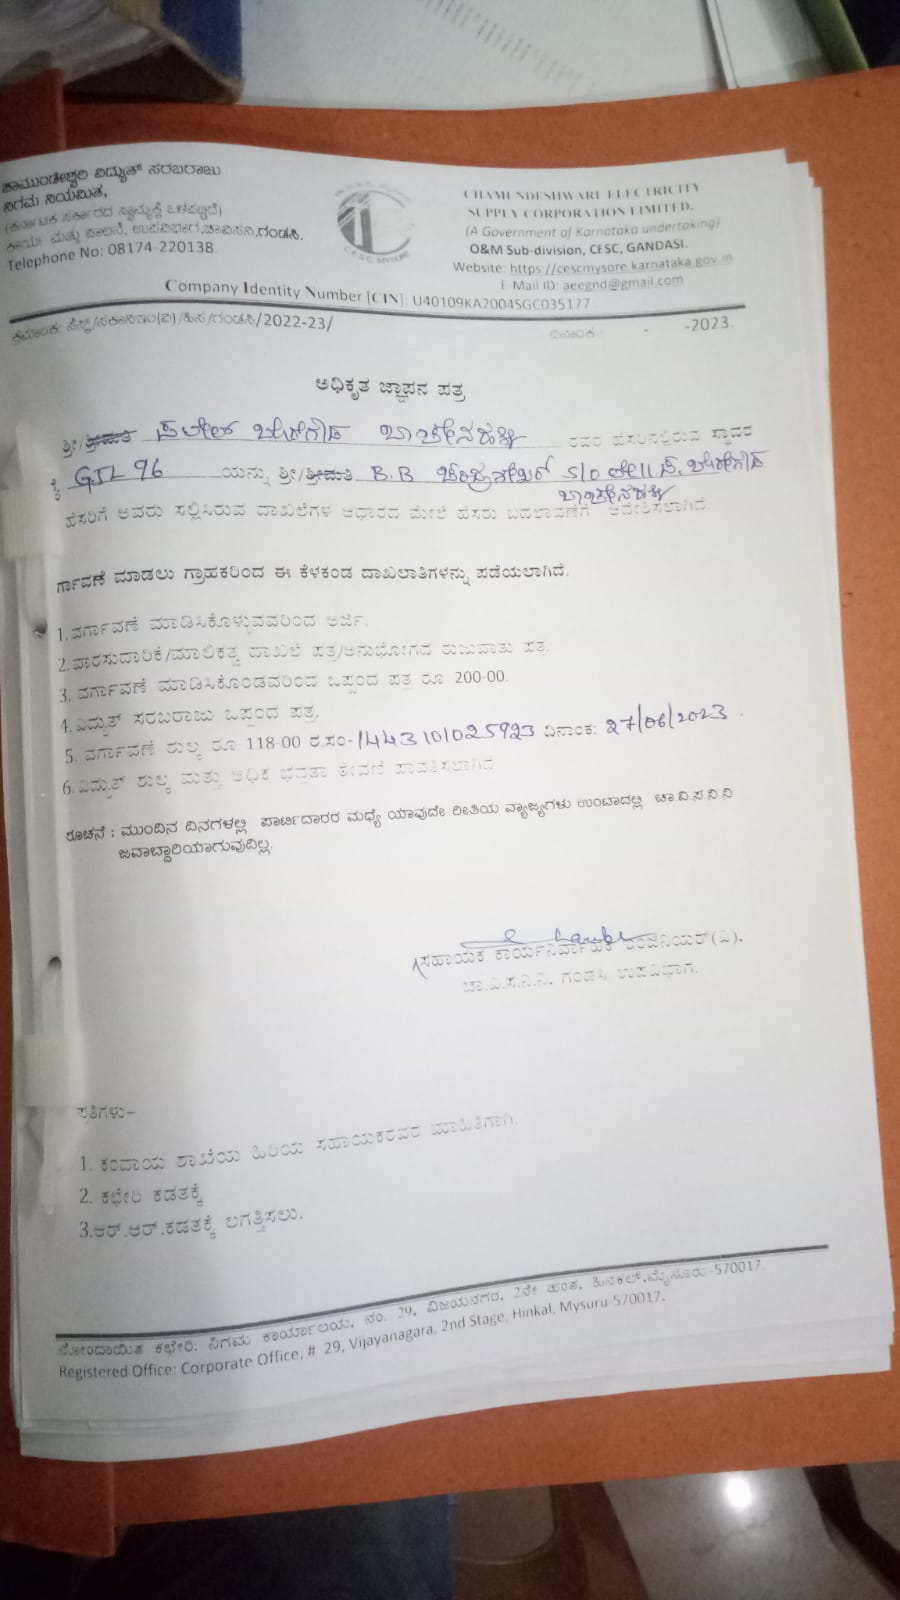 ಚಾಮುಂಡೇಶ್ವರಿ ವಿದ್ಯುತ್ ಸರಬರಾಜು
ನಿಗಮ ನಿಯಮಿತ,
(ಕರ್ನಾಟಕ ಸರ್ಕಾರದ ಸ್ವಾಮ್ಯಕ್ಕೆ ಒಳಪಟ್ಟಿದೆ)
ಕಾರ್ಯ ಮತ್ತು ಪಾಲನೆ, ಉಪವಿಭಾಗ,ಚಾವಿಸನಿ,ಗಂಡಸಿ.
Telephone No: 08174-220138.
C.E.S.C. MYSORE
CHAMUNDESHWARI ELECTRICITY
SUPPLY CORPORATION LIMITED.
(A Government of Karnataka undertaking)
O&M Sub-division, CESC, GANDASI.
Website: https://cescmysore.karnataka.gov.in
E-Mail ID: aeegnd@gmail.com
Company Identity Number [CIN]: U40109KA2004SGC035177
/ಗಂಡಸಿ/2022-23/
ದಿನಾಂಕ : - -2023.
ಅಧಿಕೃತ ಜ್ಞಾಪನ ಪತ್ರ
ಶ್ರೀ/ಶ್ರೀಮತಿ ಪಟೇಲ್ ಬೋರೇಗೌಡ ಬಾಚೇನಹಳ್ಳಿ ರವರ ಹೆಸರಿನಲ್ಲಿರುವ ಸ್ಥಾವರ
GJL 96 ಯನ್ನು ಶ್ರೀ/ಶ್ರೀಮತಿ B.B ಚಂದ್ರಶೇಖರ್ S/O ಲೇ|| ಪಿ. ಬೋರೇಗೌಡ
ಬಾಚೇನಹಳ್ಳಿ
ಹೆಸರಿಗೆ ಅವರು ಸಲ್ಲಿಸಿರುವ ದಾಖಲೆಗಳ ಆಧಾರದ ಮೇಲೆ ಹೆಸರು ಬದಲಾವಣೆಗೆ ಆದೇಶಿಸಲಾಗಿದೆ.
ರ್ಗಾವಣೆ ಮಾಡಲು ಗ್ರಾಹಕರಿಂದ ಈ ಕೆಳಕಂಡ ದಾಖಲಾತಿಗಳನ್ನು ಪಡೆಯಲಾಗಿದೆ.
1.ವರ್ಗಾವಣೆ ಮಾಡಿಸಿಕೊಳ್ಳುವವರಿಂದ ಅರ್ಜಿ.
2.ವಾರಸುದಾರಿಕೆ/ಮಾಲಿಕತ್ವ ದಾಖಲೆ ಪತ್ರ/ಅನುಭೋಗದ ರುಜುವಾತು ಪತ್ರ.
3. ವರ್ಗಾವಣೆ ಮಾಡಿಸಿಕೊಂಡವರಿಂದ ಒಪ್ಪಂದ ಪತ್ರ ರೂ 200-00.
4.ವಿದ್ಯುತ್ ಸರಬರಾಜು ಒಪ್ಪಂದ ಪತ್ರ.
5. ವರ್ಗಾವಣೆ ಶುಲ್ಕ ರೂ 118-00 ರ.ಸಂ-1443101025923 ದಿನಾಂಕ: 27/06/2023 .
6.ವಿದ್ಯುತ್ ಶುಲ್ಕ ಮತ್ತು ಅಧಿಕ ಭದ್ರತಾ ಠೇವಣಿ ಪಾವತಿಸಲಾಗಿದೆ
ಸೂಚನೆ : ಮುಂದಿನ ದಿನಗಳಲ್ಲಿ ಪಾರ್ಟಿದಾರರ ಮಧ್ಯೆ ಯಾವುದೇ ರೀತಿಯ ವ್ಯಾಜ್ಯಗಳು ಉಂಟಾದಲ್ಲಿ ಚಾ.ವಿ.ಸ.ನಿ.ನಿ
ಜವಾಬ್ದಾರಿಯಾಗುವುದಿಲ್ಲ.
ಸಹಾಯಕ ಕಾರ್ಯನಿರ್ವಾಹಕ ಇಂಜಿನಿಯರ್(ವಿ).
ಚಾ.ವಿ.ಸ.ನಿ.ನಿ. ಗಂಡಸಿ ಉಪವಿಭಾಗ.
ಪ್ರತಿಗಳು-
1. ಕಂದಾಯ ಶಾಖೆಯ ಹಿರಿಯ ಸಹಾಯಕರವರ ಮಾಹಿತಿಗಾಗಿ.
2. ಕಛೇರಿ ಕಡತಕ್ಕೆ
3.ಆರ್.ಆರ್.ಕಡತಕ್ಕೆ ಲಗತ್ತಿಸಲು.
ನೋಂದಾಯಿತ ಕಛೇರಿ: ನಿಗಮ ಕಾರ್ಯಾಲಯ, ನಂ. 29, ವಿಜಯನಗರ, 2ನೇ ಹಂತ, ಹಿನಕಲ್,ಮೈಸೂರು-570017.
Registered Office: Corporate Office, # 29, Vijayanagara, 2nd Stage, Hinkal, Mysuru-570017.